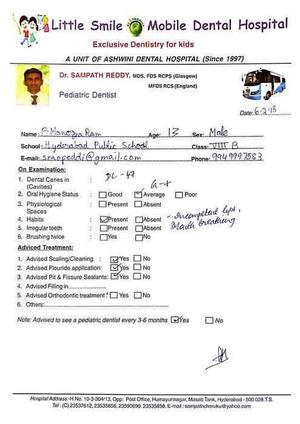 Little Smile Mobile Dental Hospital
Exclusive Dentistry for kids
A UNIT OF ASHWINI DENTAL HOSPITAL (Since 1997)
Dr. SAMPATH REDDY, MDS, FDS RCPS (Glasgow)
MFDS RCS (England)
Pediatric Dentist
Date: 6-2-15
Name: Manogna Ram Age: 13 Sex: Male
School: Hyderabad Public School Class: VIII B
E-mail: @gmail.com Phone: 9949997583
On Examination:
1. Dental Caries in (Cavities)
2. Oral Hygiene Status : Good Average Poor
3. Physiological Spaces : Present Absent
4. Habits : Present Absent - Incompetent lips, Mouth breathing
5. Irregular teeth : Present Absent
6. Brushing twice : Yes No
Advised Treatment:
1. Advised Scaling/Cleaning : Yes No
2. Advised Flouride application: Yes No
3. Advised Pit & Fissure Sealants: Yes No
4. Advised Filling in
5. Advised Orthodontic treatment : Yes No
6. Others:
Note: Advised to see a pediatric dentist every 3-6 months Yes No
Hospital Address:-H.No. 10-3-304/13, Opp: Post Office, Humayunnagar, Masab Tank, Hyderabad - 500 028.T.S.
Tel: (C) 23537612, 23535656, 23590699, 23535858. E-mail : sampathcheruku@yahoo.com